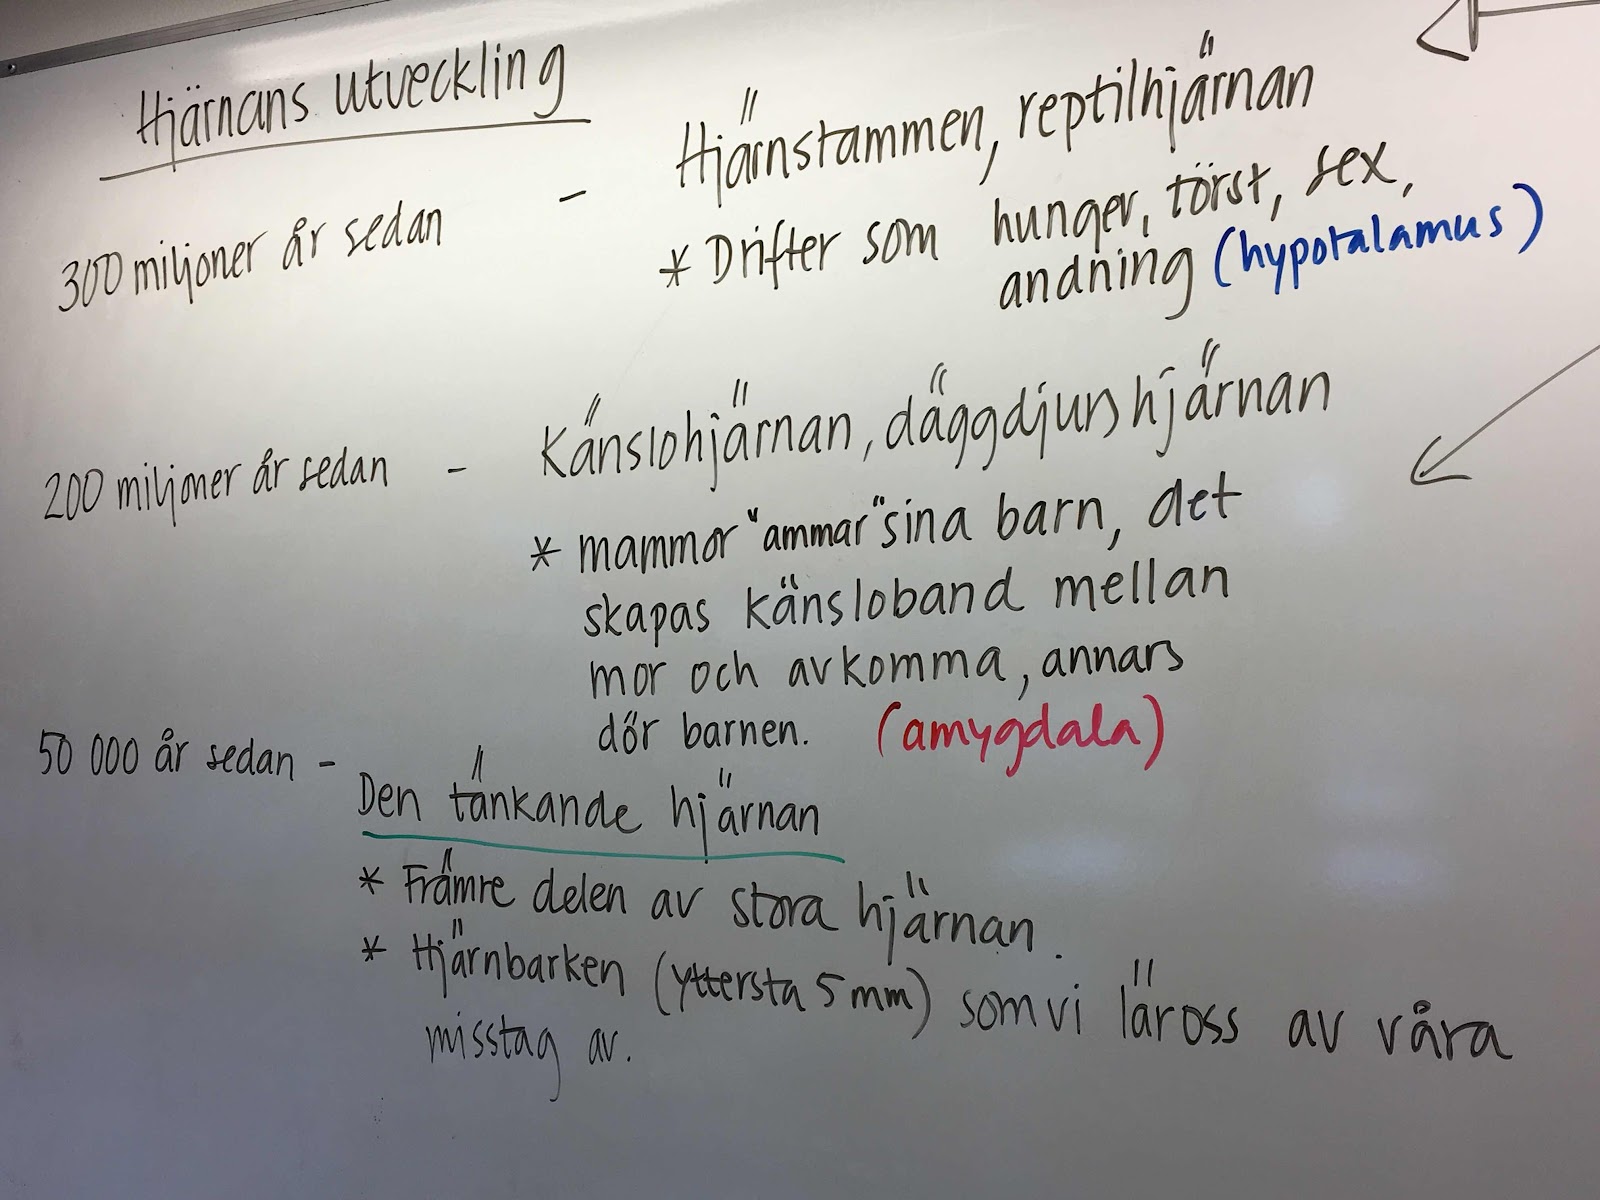 Hjärnans utveckling
300 miljoner år sedan - Hjärnstammen, reptilhjärnan
* Drifter som hunger, törst, sex,
andning (hypotalamus)
200 miljoner år sedan - Känslohjärnan, däggdjurshjärnan
* mammor "ammar" sina barn, det
skapas känsloband mellan
mor och avkomma, annars
dör barnen. (amygdala)
50 000 år sedan -
Den tänkande hjärnan
* Främre delen av stora hjärnan.
* Hjärnbarken (yttersta 5 mm) som vi lär oss av våra
misstag av.